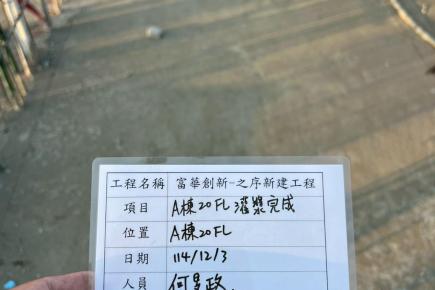 工程名稱 富華創新-之序新建工程
項目 A棟20FL灌漿完成
位置 A棟20FL
日期 114/12/3
人員 何昱政